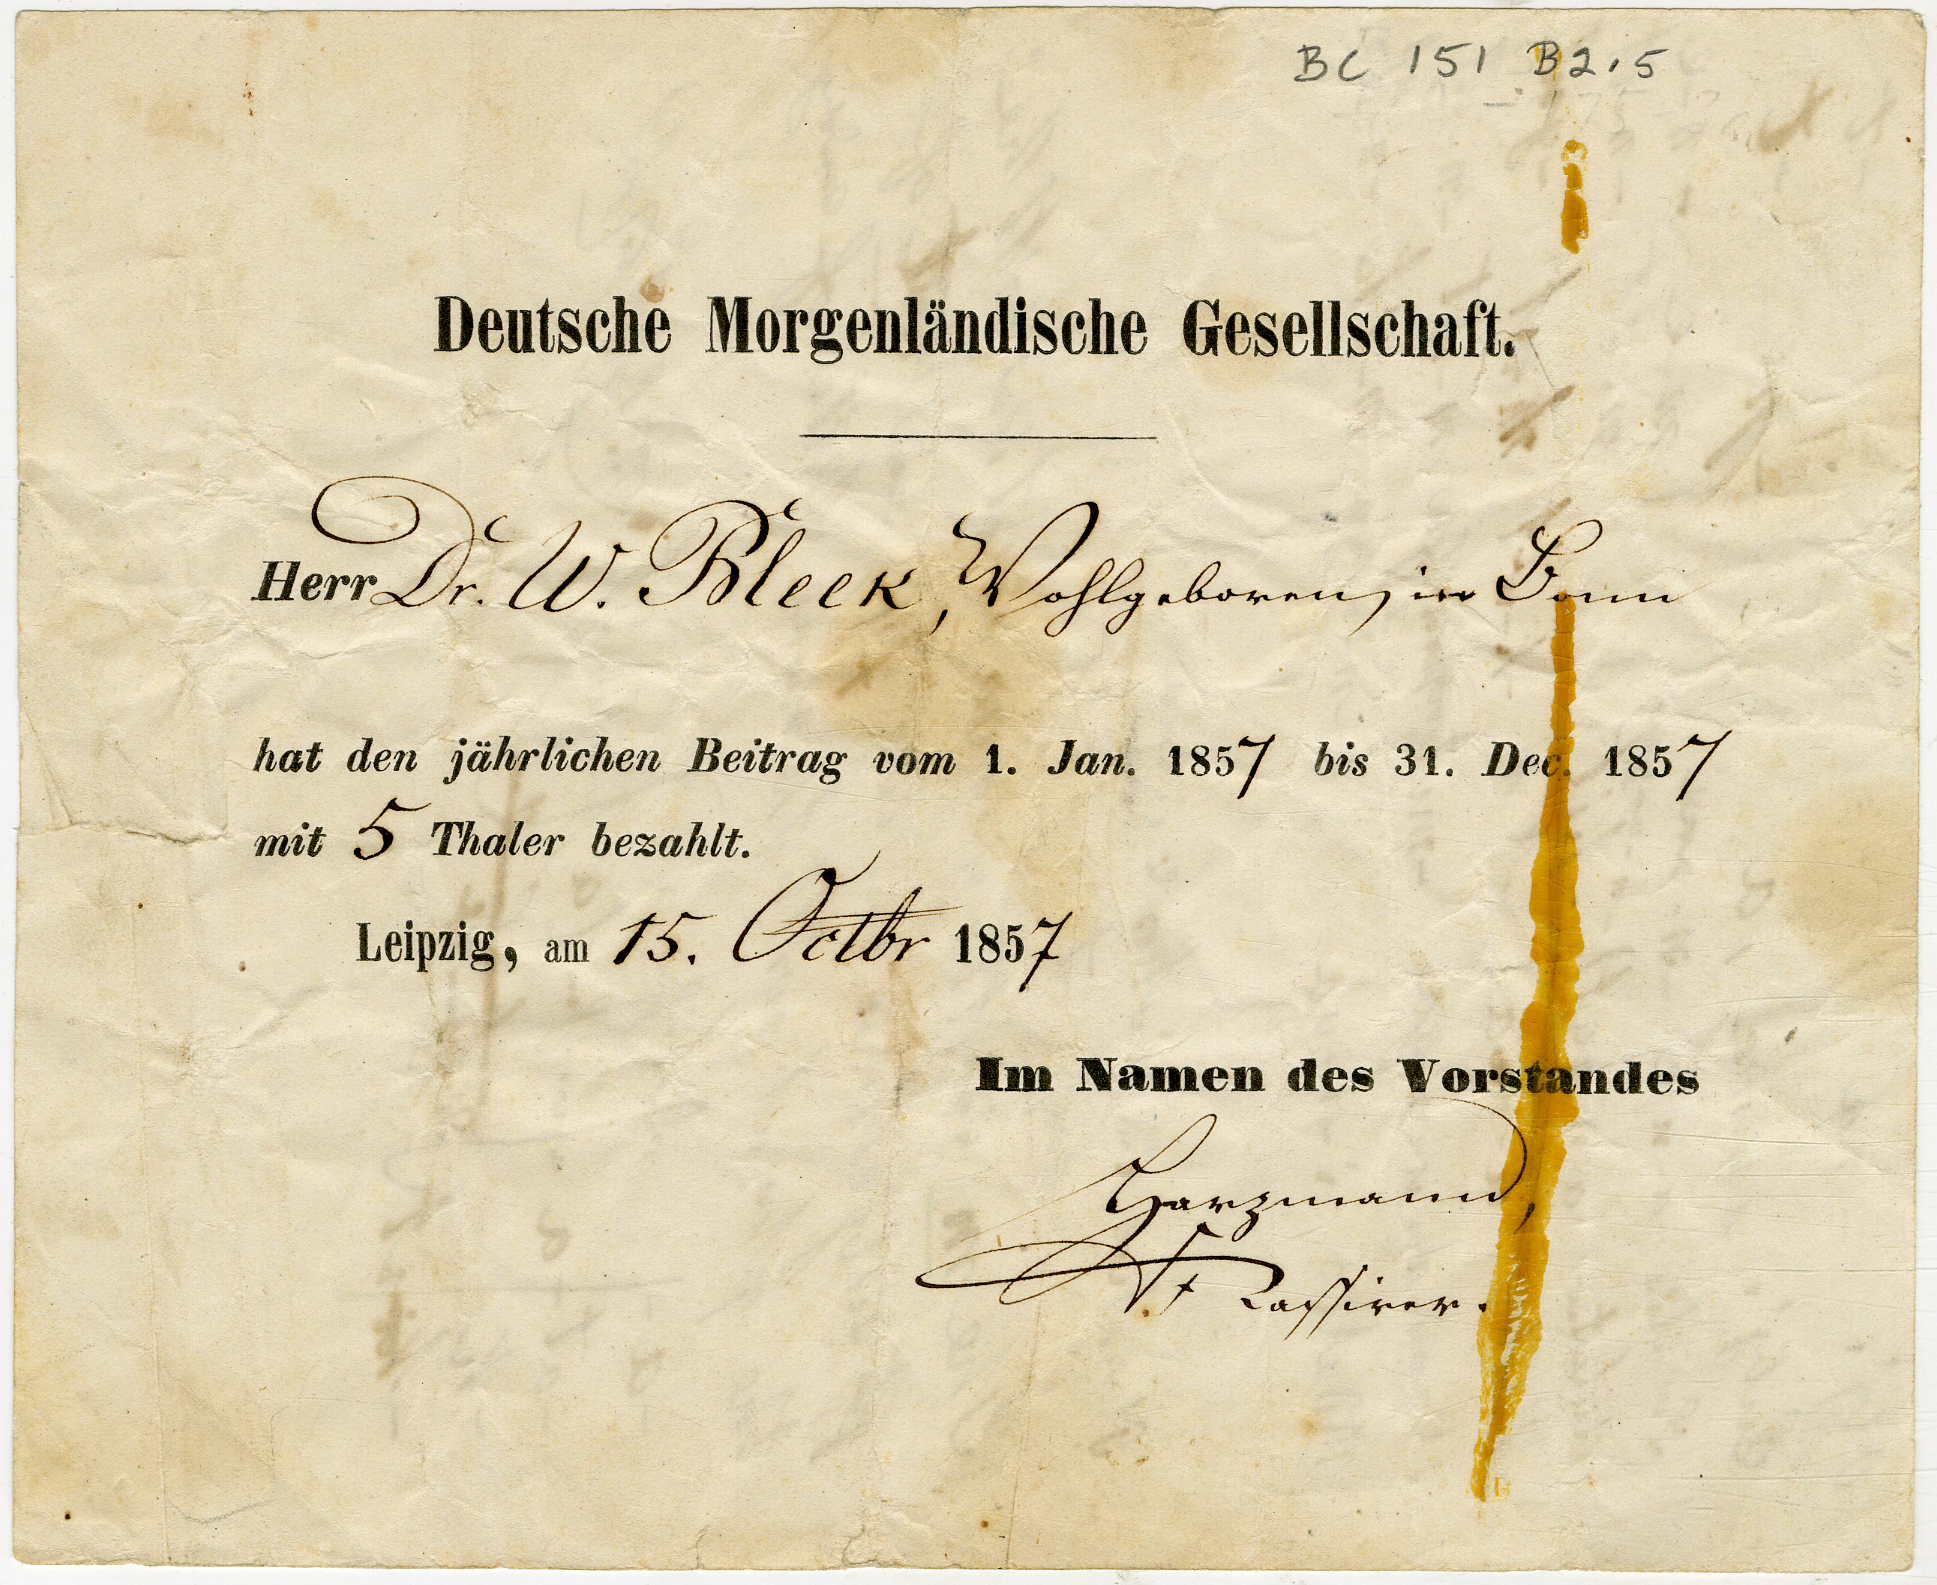 BC 151 B2.5
Deutsche Morgenländische Gesellschaft.
Herr Dr. W. Bleek, Wohlgeboren, in Bonn
hat den jährlichen Beitrag vom 1. Jan. 1857 bis 31. Dec. 1857
mit 5 Thaler bezahlt.
Leipzig, am 15. Octbr 1857
Im Namen des Vorstandes
Harzmann,
Kassirer.